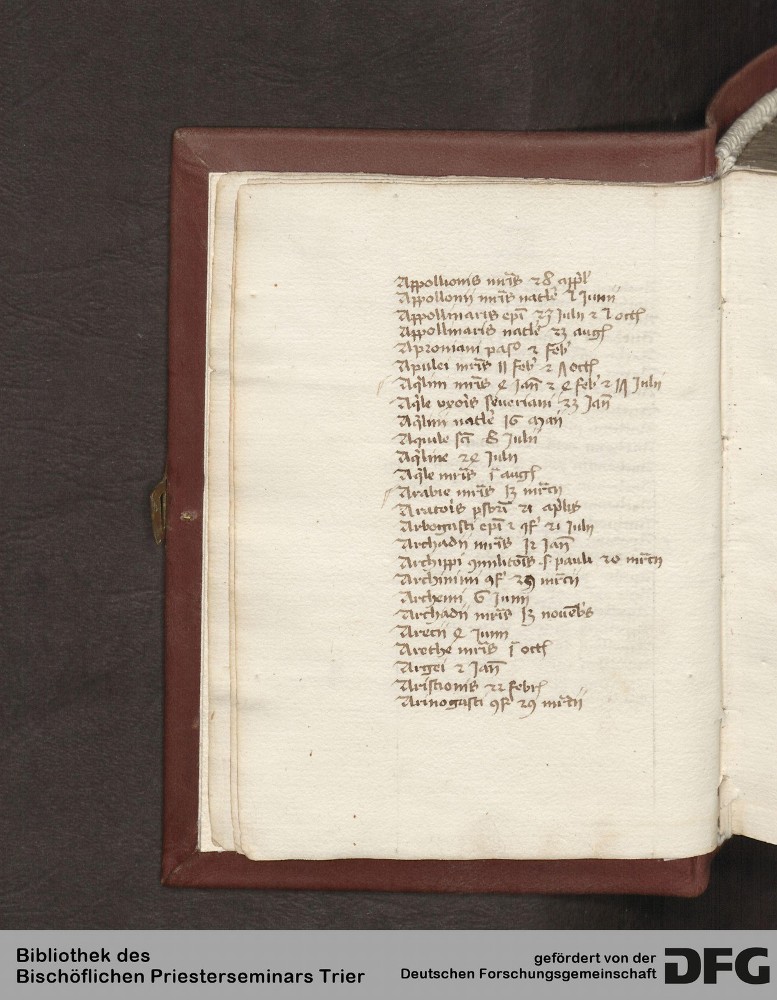 Appollionis mr̄is 28 appl'
Appollonii mr̄is natle 7 Junii
Appollinaris ep̄i 23 Julii 2 7 octƀ
Appollinaris natle 23 augƀ
Aproniani pass' 2 feb'
Apulei mr̄is 11 feb' 2 octƀ
Aq̄lini mr̄is 4 Jan̄ 2 4 feb' 2 Julii
Aq̄le vxoris seueriani 23 Jan̄
Aq̄lini natle 16 maii
Aquile sc̄i 8 Julii
Aq̄line 24 Julii
Aq̄le mr̄is 1 augƀ
Arabie mr̄is 13 mr̄cii
Aratoris pſbr̄i 21 ap'lis
Arbogasti ep̄i 2 ꝯf' 21 Julii
Archadii mr̄is 12 Jan̄
Archippi ꝯmilitōis s pauli 20 mr̄cii
Archinimi ꝯf' 29 mr̄cii
Archemi 6 Junii
Archadii mr̄is 13 nouēb's
Arecii 4 Junii
Arothe mr̄is 1 octƀ
Argei 2 Jan̄
Aristionis 22 febr'
Arinogasti ꝯf' 29 mr̄cii
Bibliothek des
Bischöflichen Priesterseminars Trier
gefördert von der
Deutschen Forschungsgemeinschaft
DFG